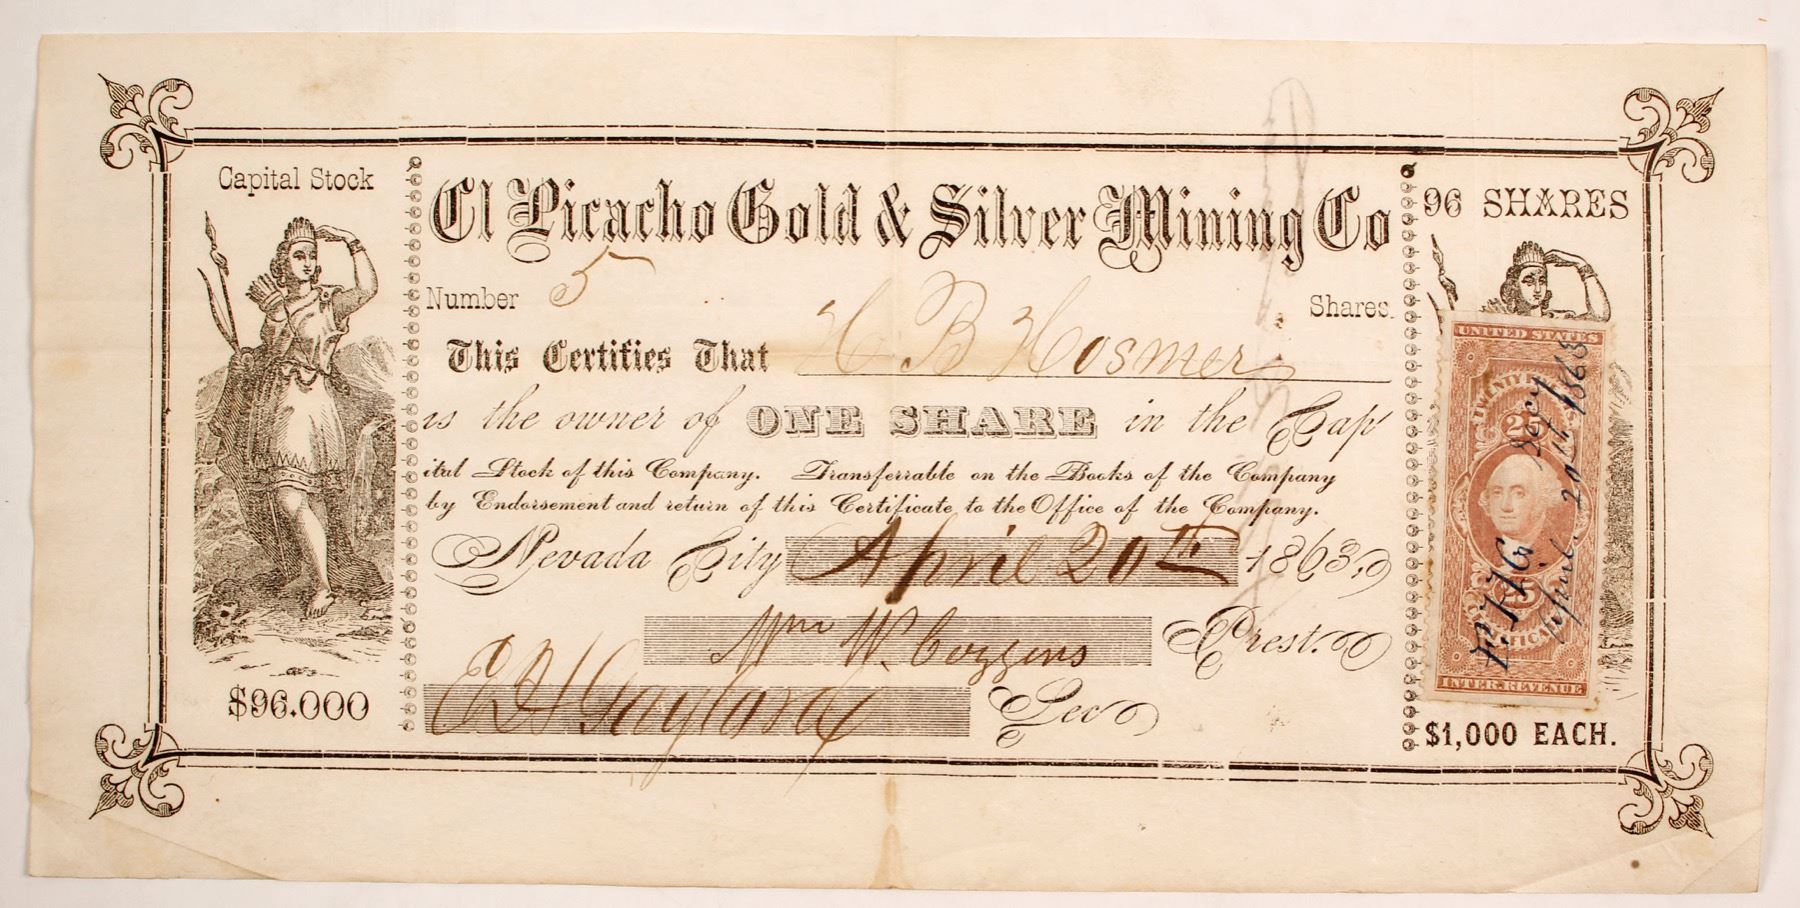 Capital Stock
El Picacho Gold & Silver Mining Co
96 SHARES
Number 5 Shares.
This Certifies That H B Hosmer
is the owner of ONE SHARE in the Cap
ital Stock of this Company. Transferrable on the Books of the Company
by Endorsement and return of this Certificate to the Office of the Company.
Nevada City April 20th 1863,
Wm W. Cozzens Prest.
E H Gaylord Sec
$96.000
UNITED STATES
25
25
INTER. REVENUE
Secy
April. 20th 1863
$1,000 EACH.